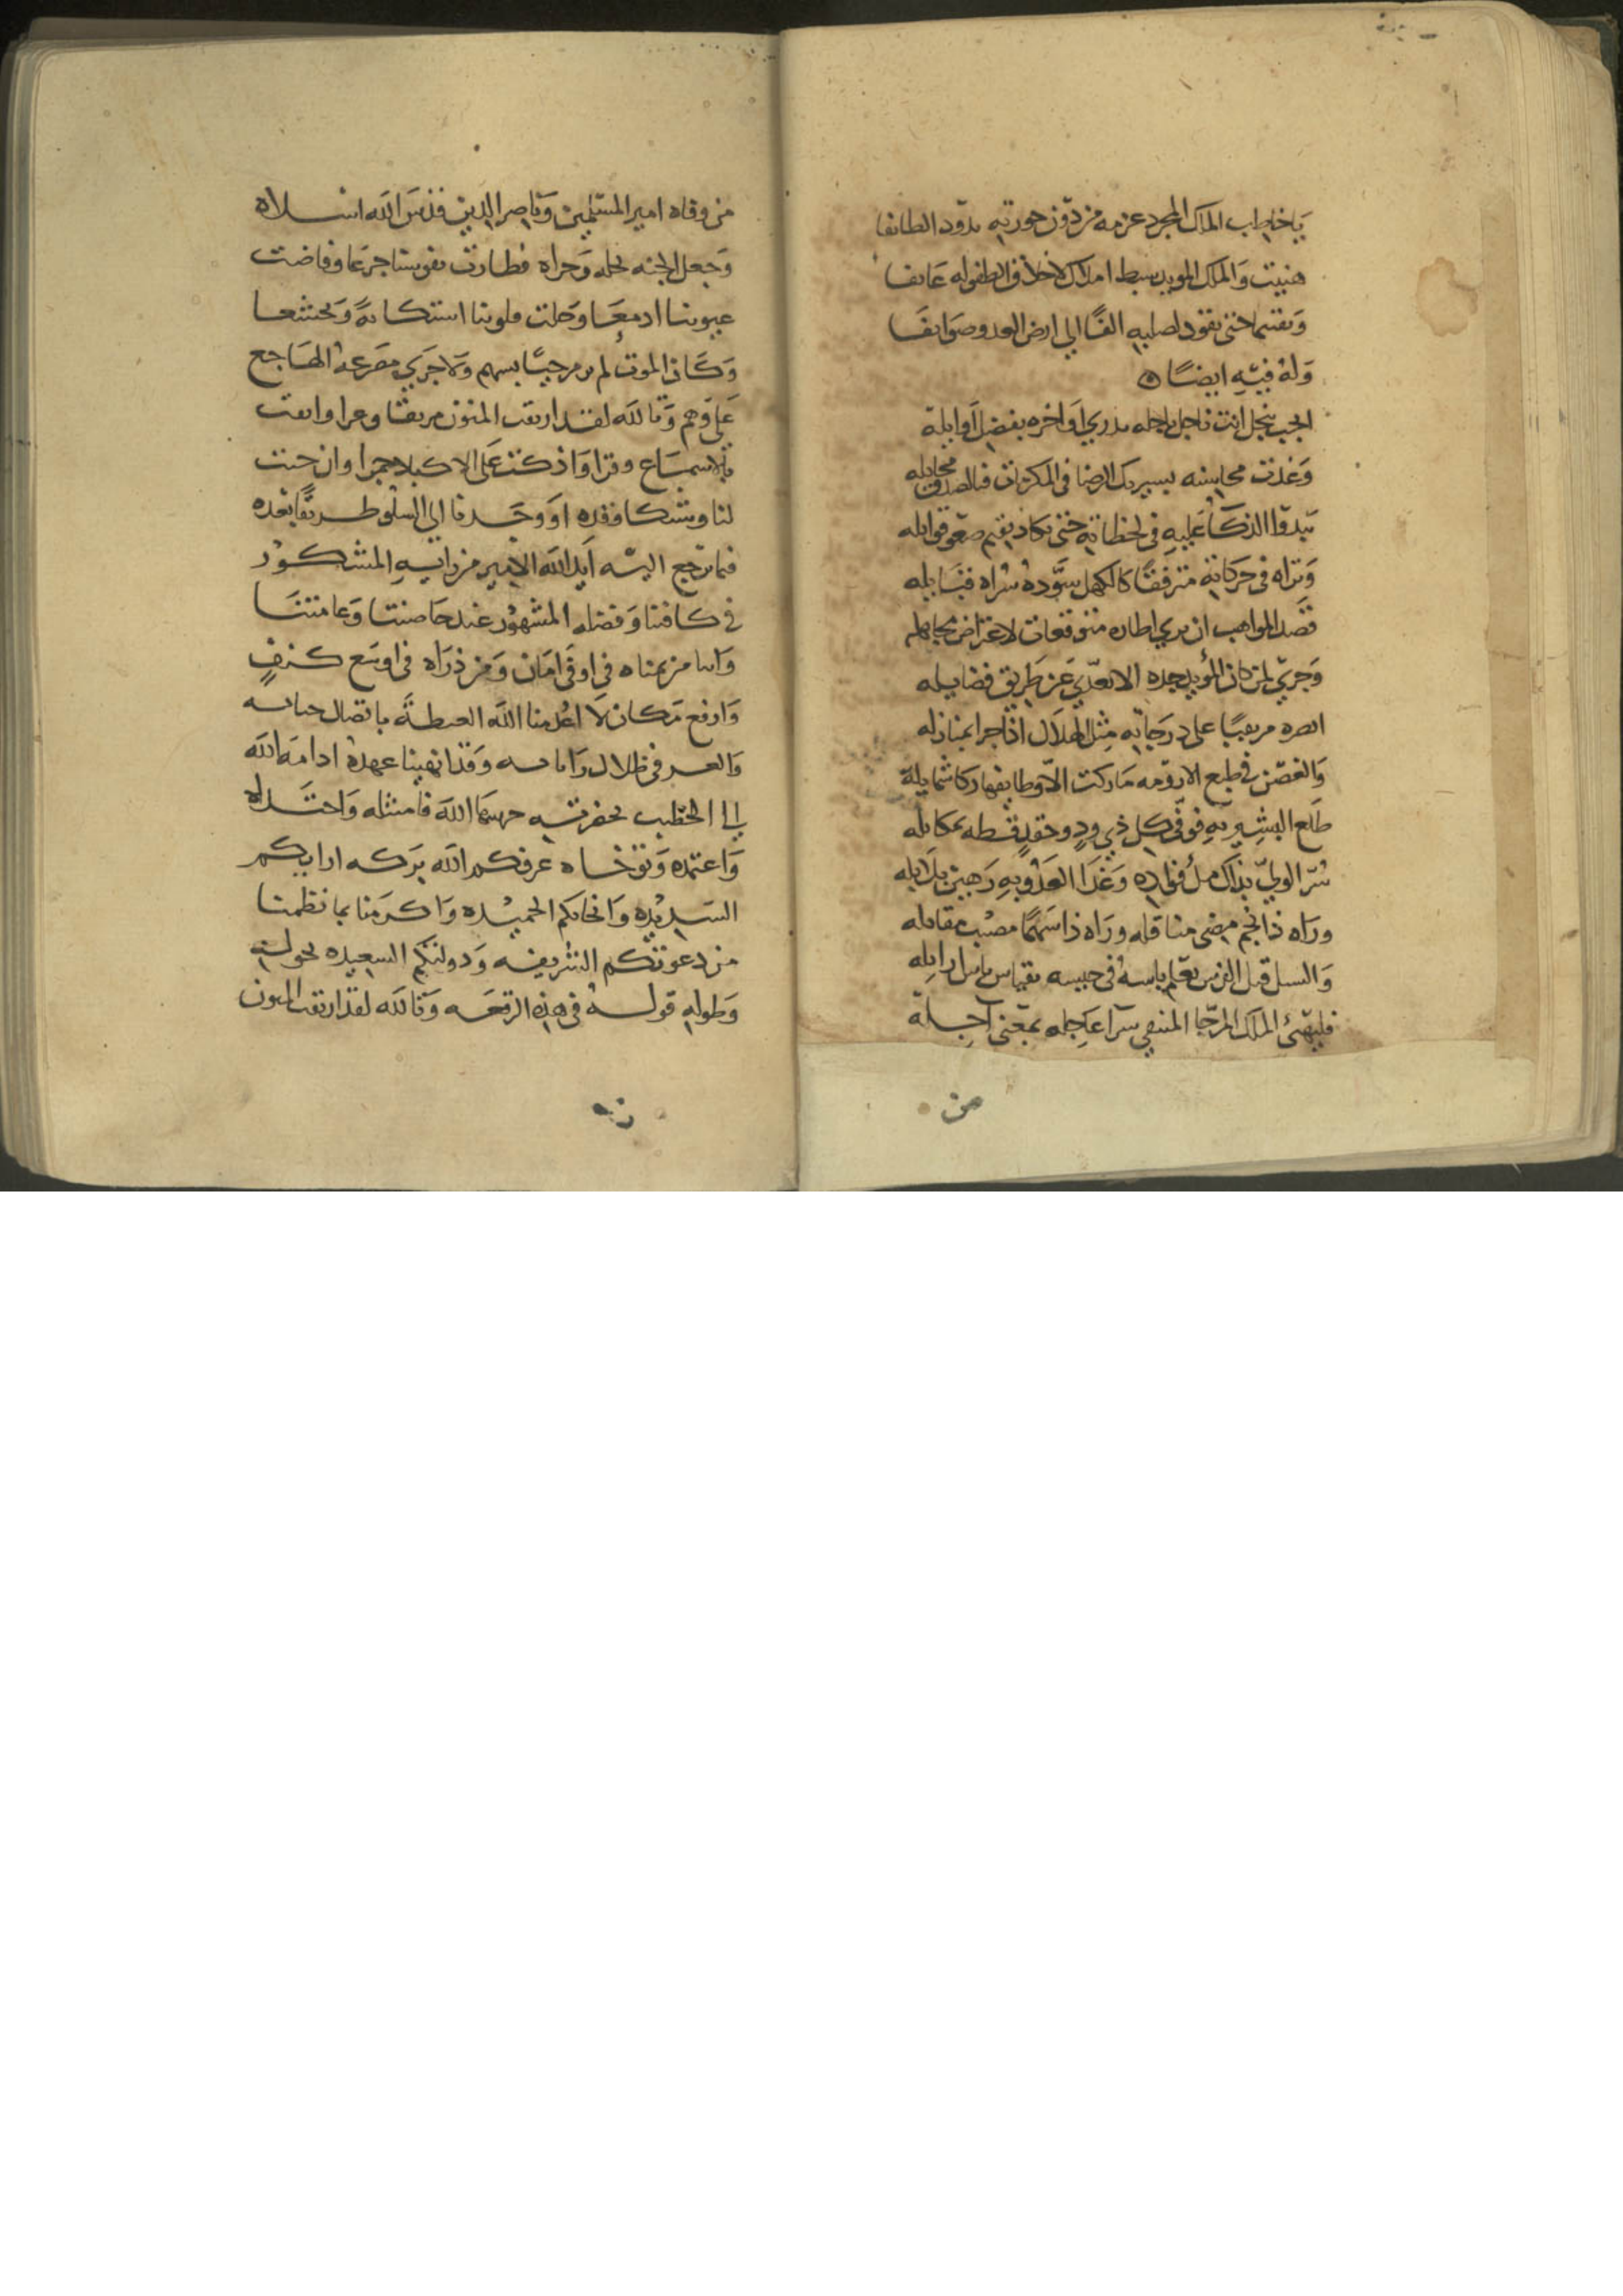 يا خاطب الملك المجرد عزمه من دون حوزته يذود الطائفا
هنيت والملك المويد سبط املاك الاخلاف الطفوله عايفا
وبقيتما حتى يقود لصلبه الفًا الي ارض العدو وصوايفا
وله فيه ايضًا
انجب بنجل انت ناجل ناجله يزري اواخره بفضل اوايله
وغذت محاسنه بسيريك الرضا في المكرمات فبالصدق مخايله
يبدوا الذكا عليه في لحظاته حتى يكاد يقيم صغو قوابله
وتراه في حركاته مترفقًا كالكهل سوده سراه قبايله
قصد المواهب ان يري اطاره متوقعات لاعتراض
وجري لمن كان المؤيد جده الا تعدي عن طريق فضايله
ابصره مرتقيًا على درجاته مثل الهلال اذا جرا بمنازله
والغصن في طبع الارومه ما زكت الا وطابقها زكا شمايله
طلع البشير به فوفى كل ذي ود وحقد قسطه بمكايله
سر الولي بذاك ملُ فؤاده وغدا العدو به رهين بلابله
وراه ذا نجم مضى متناقله وراه ذا سهمًا مصيب مقاتله
والنسل قبل الفرس تعلم باسه في جنسه بقياس باس
فليهنئ الملك المرجا المنتقي سرا عاجله بمقتنى آجله
من
من وفاه امير المسلمين وناصر الدين قدس الله اسلاه
وجعل الجنه نحله وجزاه فطارت نفوسنا جزعا وفاضت
عيوننا ادمعا وحلت قلوبنا استكانة وتخشعا
وكان الموت لم يرم حيًا بسهم ولا جري مصرعه الهاجع
على وهم وتالله لقد اربقت المنون مريقا وعرا وابقت
بالاسماع وقرا واذكت على الاكباد جمرا وان حنت
لنا وشكا فقده او وجدنا الي السلو طريقًا بعده
فما نرجع اليه ايد الله الامير من رايه المشكور
في كافتنا وفضله المشهور عند خاصتنا وعامتنا
وانا من يمناه في اوقى امان ومن ذراه في اوسع كنف
وارفع مكان لا اعدمنا الله الغبطة باتصال حياته
والعز في ظلال راياته وقد انهينا عهده ادامه الله
الي الخطيب بحضرته حرسها الله فامتثله واحتذاه
واعتمده وتوخاه عرفكم الله بركه ارايكم
السديده وانحايكم الحميده واكرمنا بما نظمنا
من دعوتكم الشريفه ودولتكم السعيده بحوله
وطوله قوله في هذه الرقعه وتالله لقد اربقت المنون